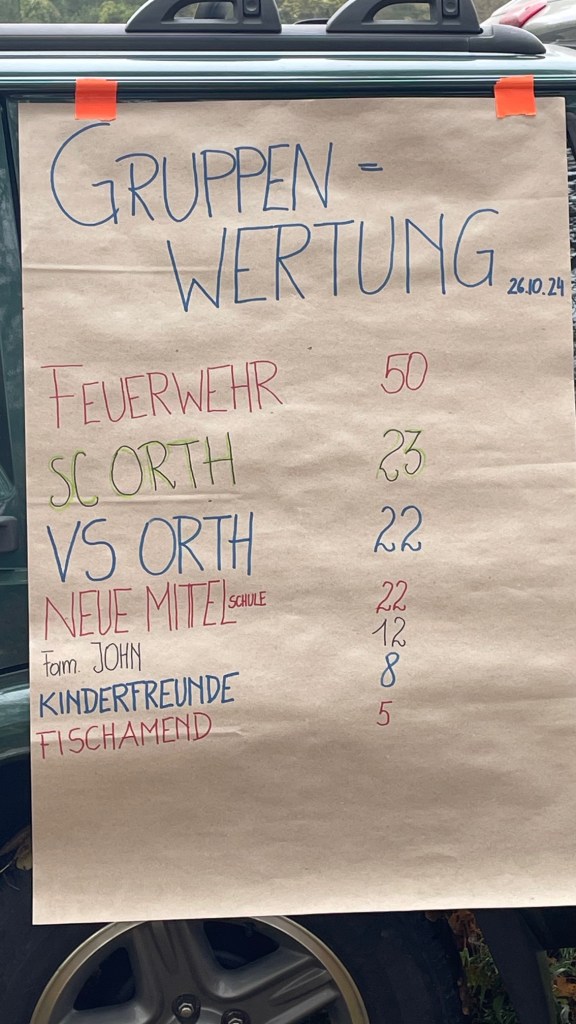 GRUPPEN-
WERTUNG 26.10.24
FEUERWEHR 50
SC ORTH 23
VS ORTH 22
NEUE MITELSCHULE 22
Fam. JOHN 12
KINDERFREUNDE 8
FISCHAMEND 5